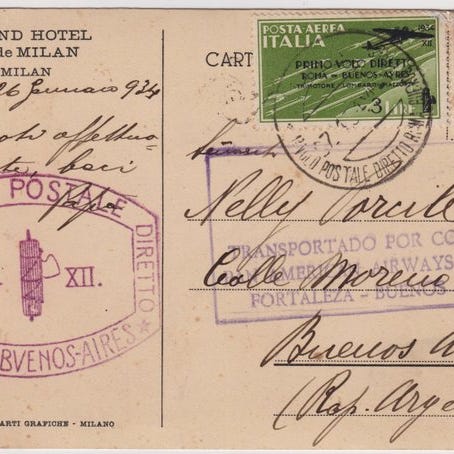 ND HOTEL
de MILAN
MILAN
26 Gennaro 934
baci
Papa
POSTALE
DIRETTO
XII.
BVENOS-AIRES
ARTI GRAFICHE - MILANO
CART
POSTA-AEREA
ITALIA
1934
XII
PRIMO VOLO DIRETTO
ROMA = BUENOS-AYRES
TRIMOTORE "LOMBARDI-MAZZOTTI"
3 LIRE
VOLO POSTALE DIRETTO R
Nelly
TRANSPORTADO POR CO
PAN AMERICAN AIRWAYS
FORTALEZA - BUENOS
Calle Moreno
Buenos A
(Rep. Arge